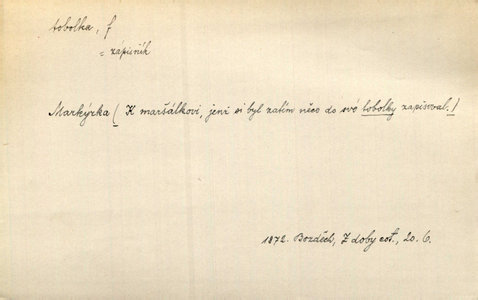 tobolka, f
= zápisník
Markýrka (K maršálkovi, jenž si byl zatím něco do své tobolky zapisoval.)
1872. Bozděch, Z doby cot., 20. 6.